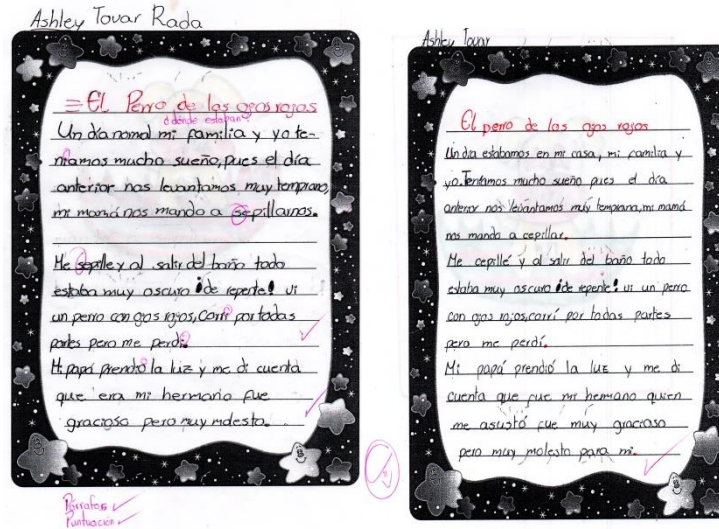 Ashley Tovar Rada
El Perro de los ojos rojos
¿dónde estaban?
Un día normal mi familia y yo te-
níamos mucho sueño, pues el día
anterior nos levantamos muy temprano,
mi mamá nos mando a sepillarnos.
Me sepille y al salir del baño todo
estaba muy oscuro ¡de repente! vi
un perro con ojos rojos, corrí por todas
partes pero me perdí.
Mi papá prendió la luz y me di cuenta
que era mi hermano fue
gracioso pero muy molesto.
Párrafos
Puntuación
Ashley Tovar
El perro de los ojos rojos
Un día estabamos en mi casa, mi familia y
yo. Teníamos mucho sueño pues el día
anterior nos levantamos muy temprano, mi mamá
nos mando a cepillar.
Me cepillé y al salir del baño todo
estaba muy oscuro ¡de repente! vi un perro
con ojos rojos, corrí por todas partes
pero me perdí.
Mi papá prendió la luz y me di
cuenta que fue mi hermano quien
me asustó fue muy gracioso
pero muy molesto para mi.